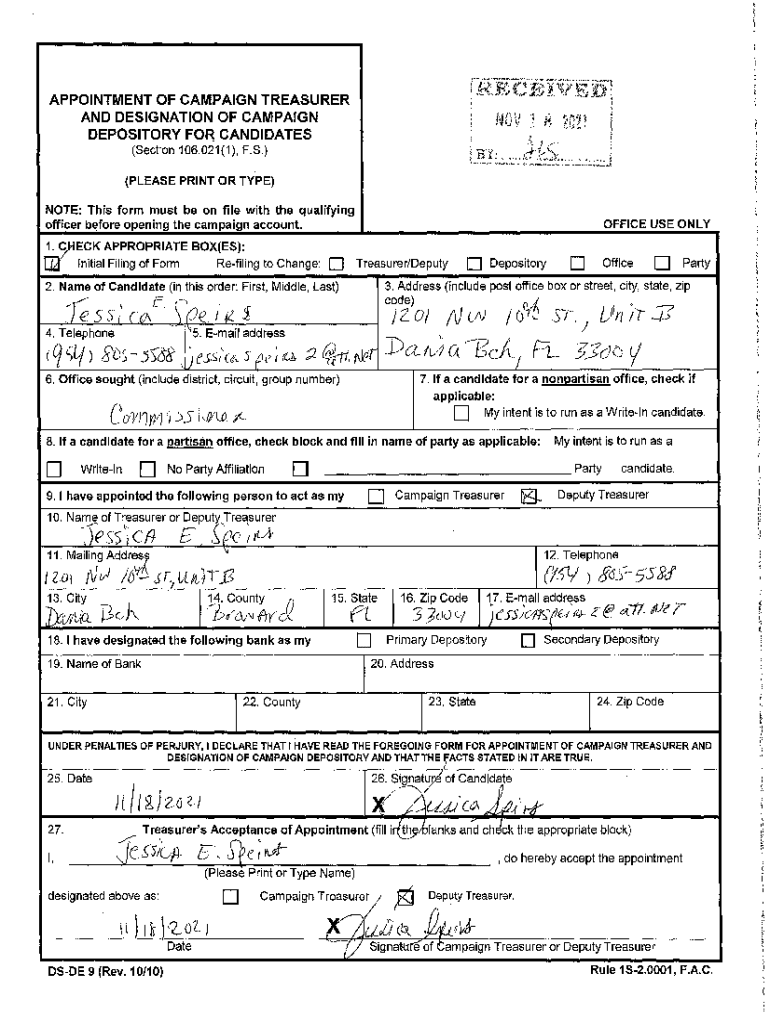 APPOINTMENT OF CAMPAIGN TREASURER
AND DESIGNATION OF CAMPAIGN
DEPOSITORY FOR CANDIDATES
(Section 106.021(1), F.S.)
(PLEASE PRINT OR TYPE)
NOTE: This form must be on file with the qualifying
officer before opening the campaign account.
RECEIVED
NOV 18 2021
BY:
OFFICE USE ONLY
1. CHECK APPROPRIATE BOX(ES):
Initial Filing of Form Re-filing to Change: Treasurer/Deputy Depository Office Party
2. Name of Candidate (in this order: First, Middle, Last)
Jessica E Speirs
3. Address (include post office box or street, city, state, zip
code)
1201 NW 10th ST., Unit B
Dania Bch, FL 33004
4. Telephone
(954) 805-5588
5. E-mail address
jessicaspeirs2@att.net
6. Office sought (include district, circuit, group number)
Commissioner
7. If a candidate for a nonpartisan office, check if
applicable:
My intent is to run as a Write-In candidate.
8. If a candidate for a partisan office, check block and fill in name of party as applicable: My intent is to run as a
Write-In No Party Affiliation Party candidate.
9. I have appointed the following person to act as my Campaign Treasurer Deputy Treasurer
10. Name of Treasurer or Deputy Treasurer
Jessica E Speirs
11. Mailing Address
1201 NW 10th ST, Unit B
12. Telephone
(954) 805-5588
13. City
Dania Bch
14. County
15. State
FL
16. Zip Code
33004
17. E-mail address
jessicaspeirs2@att.net
18. I have designated the following bank as my Primary Depository Secondary Depository
19. Name of Bank
20. Address
21. City
22. County
23. State
24. Zip Code
UNDER PENALTIES OF PERJURY, I DECLARE THAT I HAVE READ THE FOREGOING FORM FOR APPOINTMENT OF CAMPAIGN TREASURER AND
DESIGNATION OF CAMPAIGN DEPOSITORY AND THAT THE FACTS STATED IN IT ARE TRUE.
25. Date
11/18/2021
26. Signature of Candidate
X Jessica Speirs
27. Treasurer's Acceptance of Appointment (fill in the blanks and check the appropriate block)
I, Jessica E. Speirs , do hereby accept the appointment
(Please Print or Type Name)
designated above as: Campaign Treasurer Deputy Treasurer.
11/18/2021 X Jessica Speirs
Date Signature of Campaign Treasurer or Deputy Treasurer
DS-DE 9 (Rev. 10/10) Rule 1S-2.0001, F.A.C.